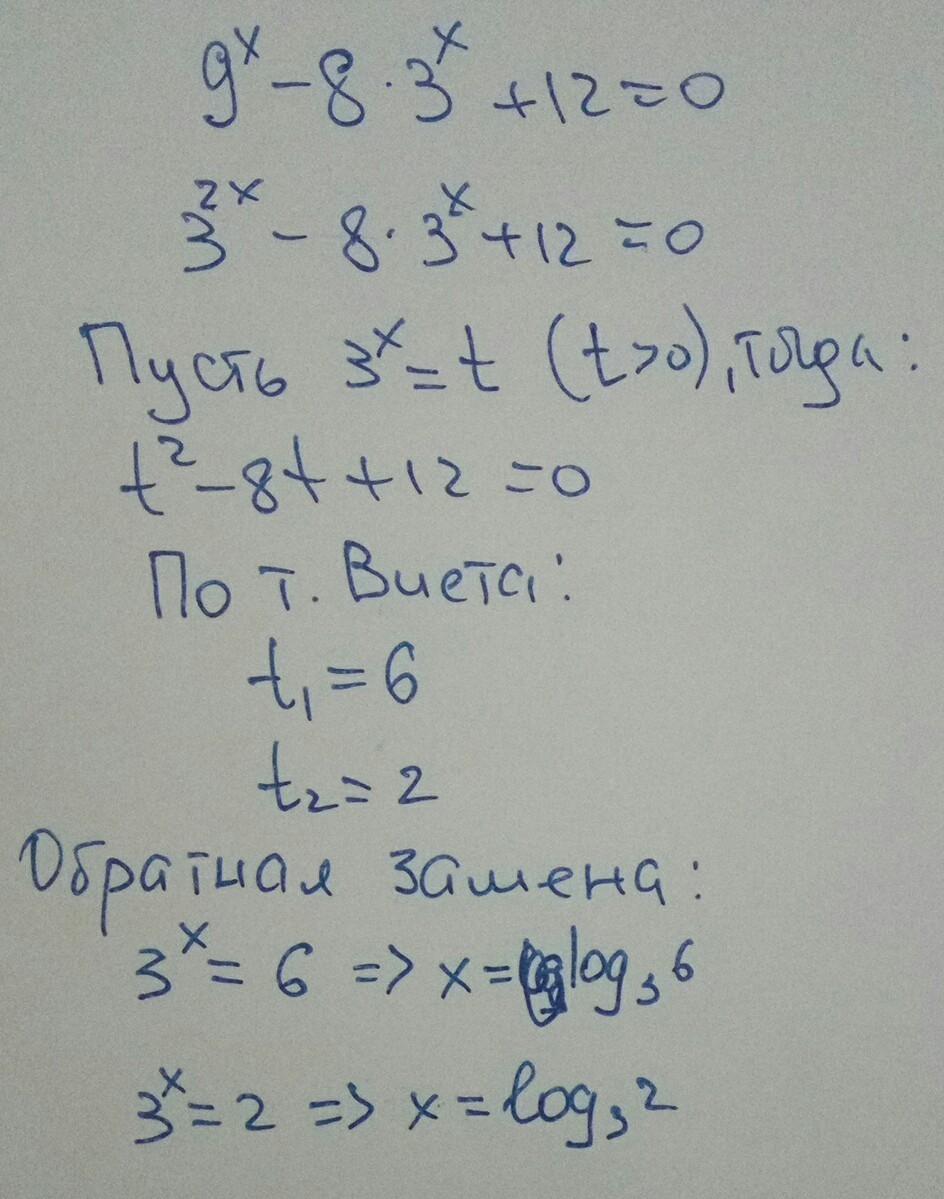 9ˣ - 8 · 3ˣ + 12 = 0
3²ˣ - 8 · 3ˣ + 12 = 0
Пусть 3ˣ = t (t > 0), тогда:
t² - 8t + 12 = 0
По т. Виета:
t₁ = 6
t₂ = 2
Обратная замена:
3ˣ = 6 => x = log₃ 6
3ˣ = 2 => x = log₃ 2